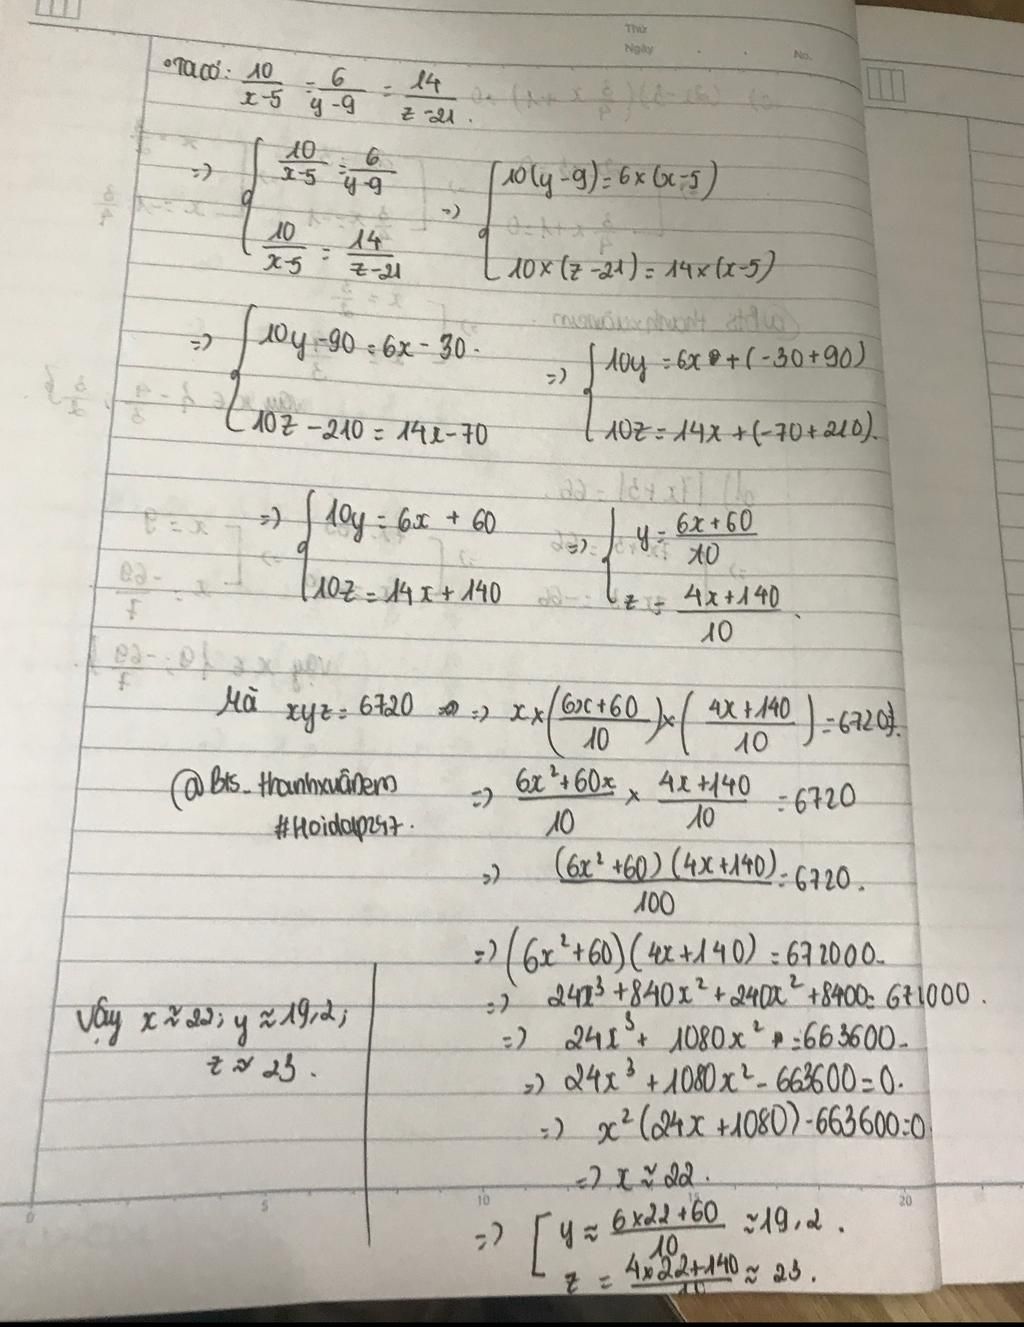 Thứ
Ngày
No.
Ta có: 10/(x-5) = 6/(y-9) = 14/(z-21).
=> { 10/(x-5) = 6/(y-9) => { 10(y-9) = 6×(x-5)
10/(x-5) = 14/(z-21) 10×(z-21) = 14×(x-5)
=> { 10y-90 = 6x-30. => { 10y = 6x+(-30+90)
10z-210 = 14x-70 10z = 14x+(-70+210).
=> { 10y = 6x + 60 => { y = (6x+60)/10
10z = 14x+140 z = (4x+140)/10.
Mà xyz = 6720 => x×((6x+60)/10)×((4x+140)/10) = 6720.
@Bts_thanhxuânem => (6x²+60x)/10 × (4x+140)/10 = 6720
#Hoidap247.
=> (6x²+60)(4x+140)/100 = 6720.
=> (6x²+60)(4x+140) = 672000.
=> 24x³+840x²+240x²+8400 = 671000.
=> 24x³ + 1080x² = 663600.
=> 24x³+1080x²-663600 = 0.
=> x²(24x+1080)-663600 = 0
=> x ≈ 22.
=> [ y ≈ (6×22+60)/10 ≈ 19,2.
z = (4×22+140)/10 ≈ 23.
Vậy x ≈ 22; y ≈ 19,2;
z ≈ 23.
0 5 10 15 20